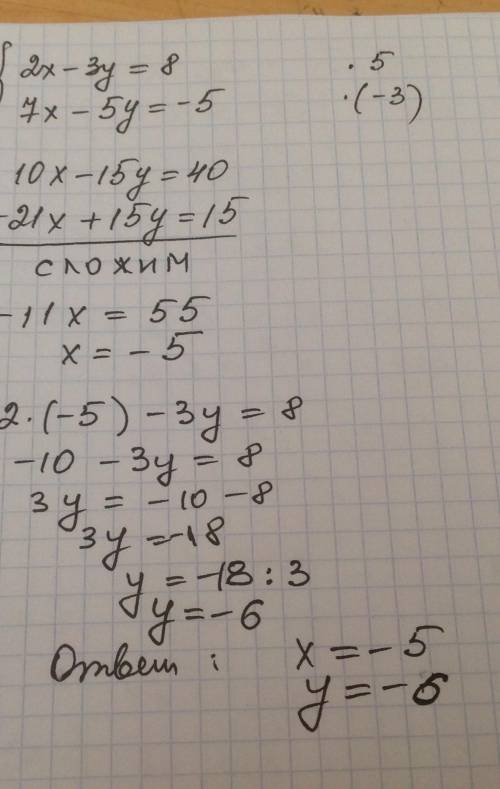 2x - 3y = 8 · 5
7x - 5y = -5 · (-3)
10x - 15y = 40
-21x + 15y = 15
сложим
-11x = 55
x = -5
2 · (-5) - 3y = 8
-10 - 3y = 8
3y = -10 - 8
3y = -18
y = -18 : 3
y = -6
Ответ : x = -5
y = -6